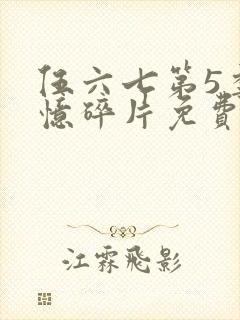 伍六七第5季
憶碎片免費
江霖飛影